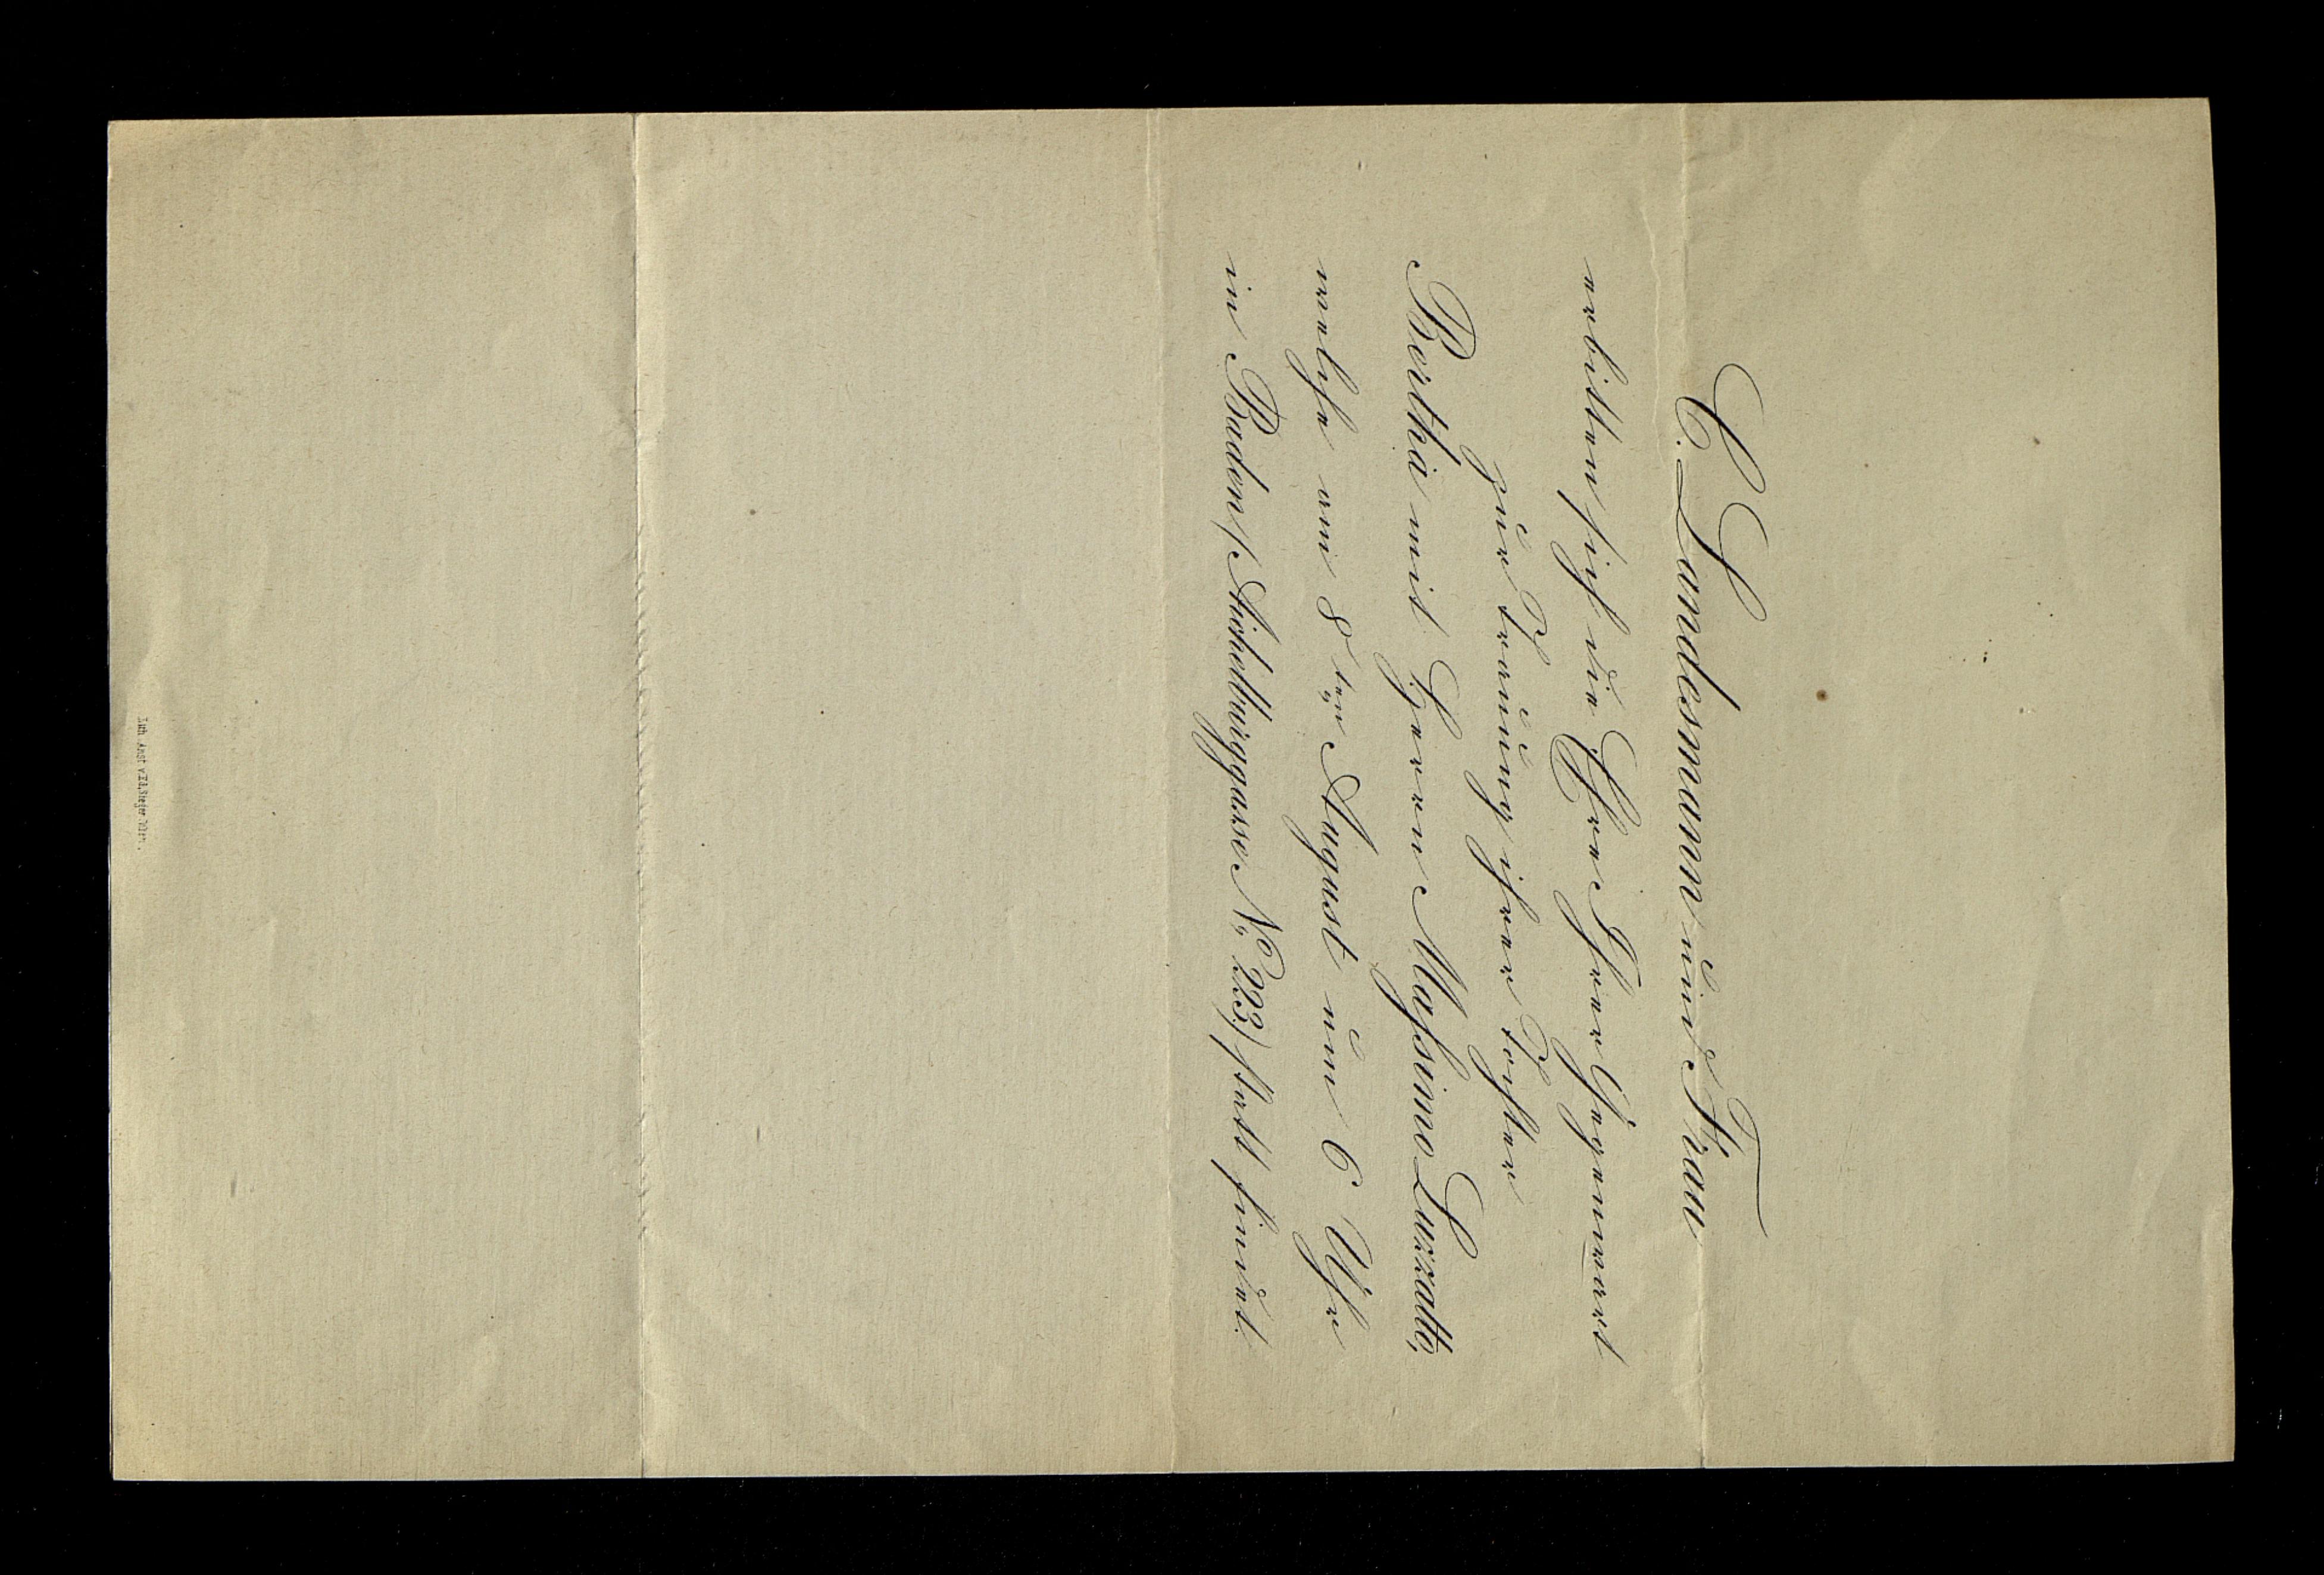 C. Landesmann und Frau
erbitten sich die Ehre Ihrer Gegenwart
zur Trauung ihrer Tochter
Bertha mit Herrn Massimo Luzzatto,
welche am 8ten August um 6 Uhr
in Baden (Aichelburggasse No 223) statt findet.
Lith. Anst. v. Ed. Sieger Wien.